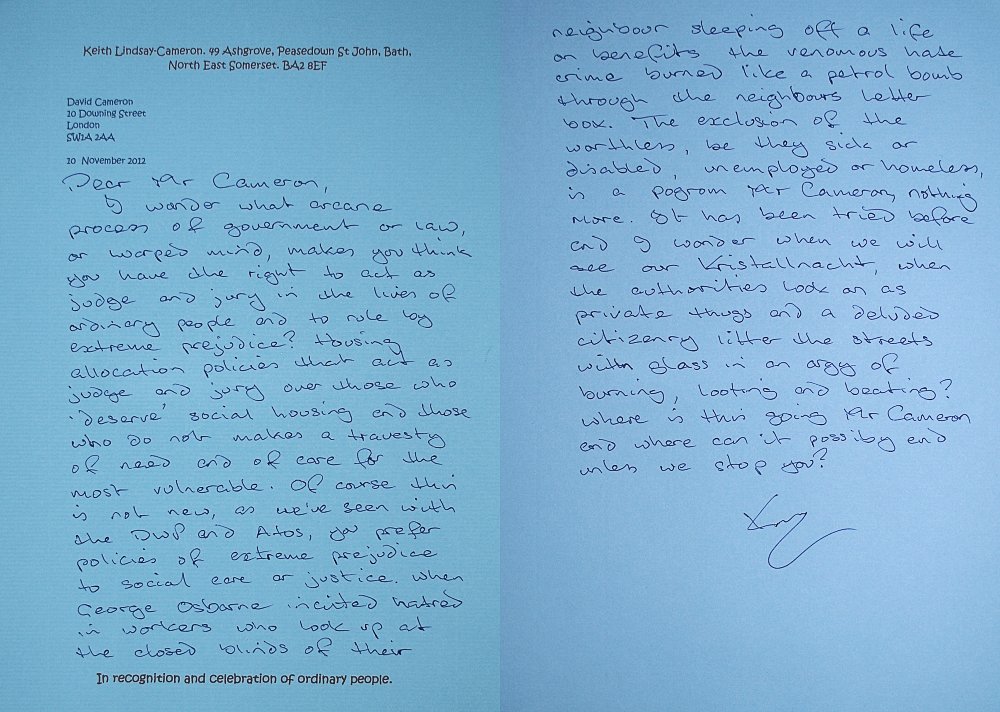 Keith Lindsay-Cameron. 49 Ashgrove, Peasedown St John, Bath,
North East Somerset. BA2 8EF
David Cameron
10 Downing Street
London
SW1A 2AA
20 November 2012
Dear Mr Cameron,
I wonder what arcane
process of government or law,
or warped mind, makes you think
you have the right to act as
judge and jury in the lives of
ordinary people and to rule by
extreme prejudice? Housing
allocation policies that act as
judge and jury over those who
'deserve' social housing and those
who do not makes a travesty
of need and of care for the
most vulnerable. Of course this
is not new, as we've seen with
the DWP and Atos, you prefer
policies of extreme prejudice
to social care or justice. When
George Osborne incited hatred
in workers who look up at
the closed blinds of their
In recognition and celebration of ordinary people.
neighbour sleeping off a life
on benefits the venomous hate
crime burned like a petrol bomb
through the neighbours letter
box. The exclusion of the
worthless, be they sick or
disabled, unemployed or homeless,
is a pogrom Mr Cameron, nothing
more. It has been tried before
and I wonder when we will
see our Kristallnacht, when
the authorities look on as
private thugs and a deluded
citizenry litter the streets
with glass in an orgy of
burning, looting and beating?
Where is this going Mr Cameron
and where can it possibly end
unless we stop you?